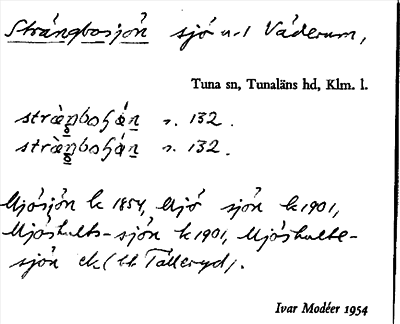 Strångbosjön sjö n-l Väderum,
Tuna sn, Tunaläns hd, Klm. l.
s. 132.
s. 132.
Mjösjön k 1854, Mjö sjön k 1901,
Mjöshults-sjön k 1901, Mjöshulte-
sjön ek (bl Tälleryd).
Ivar Modéer 1954